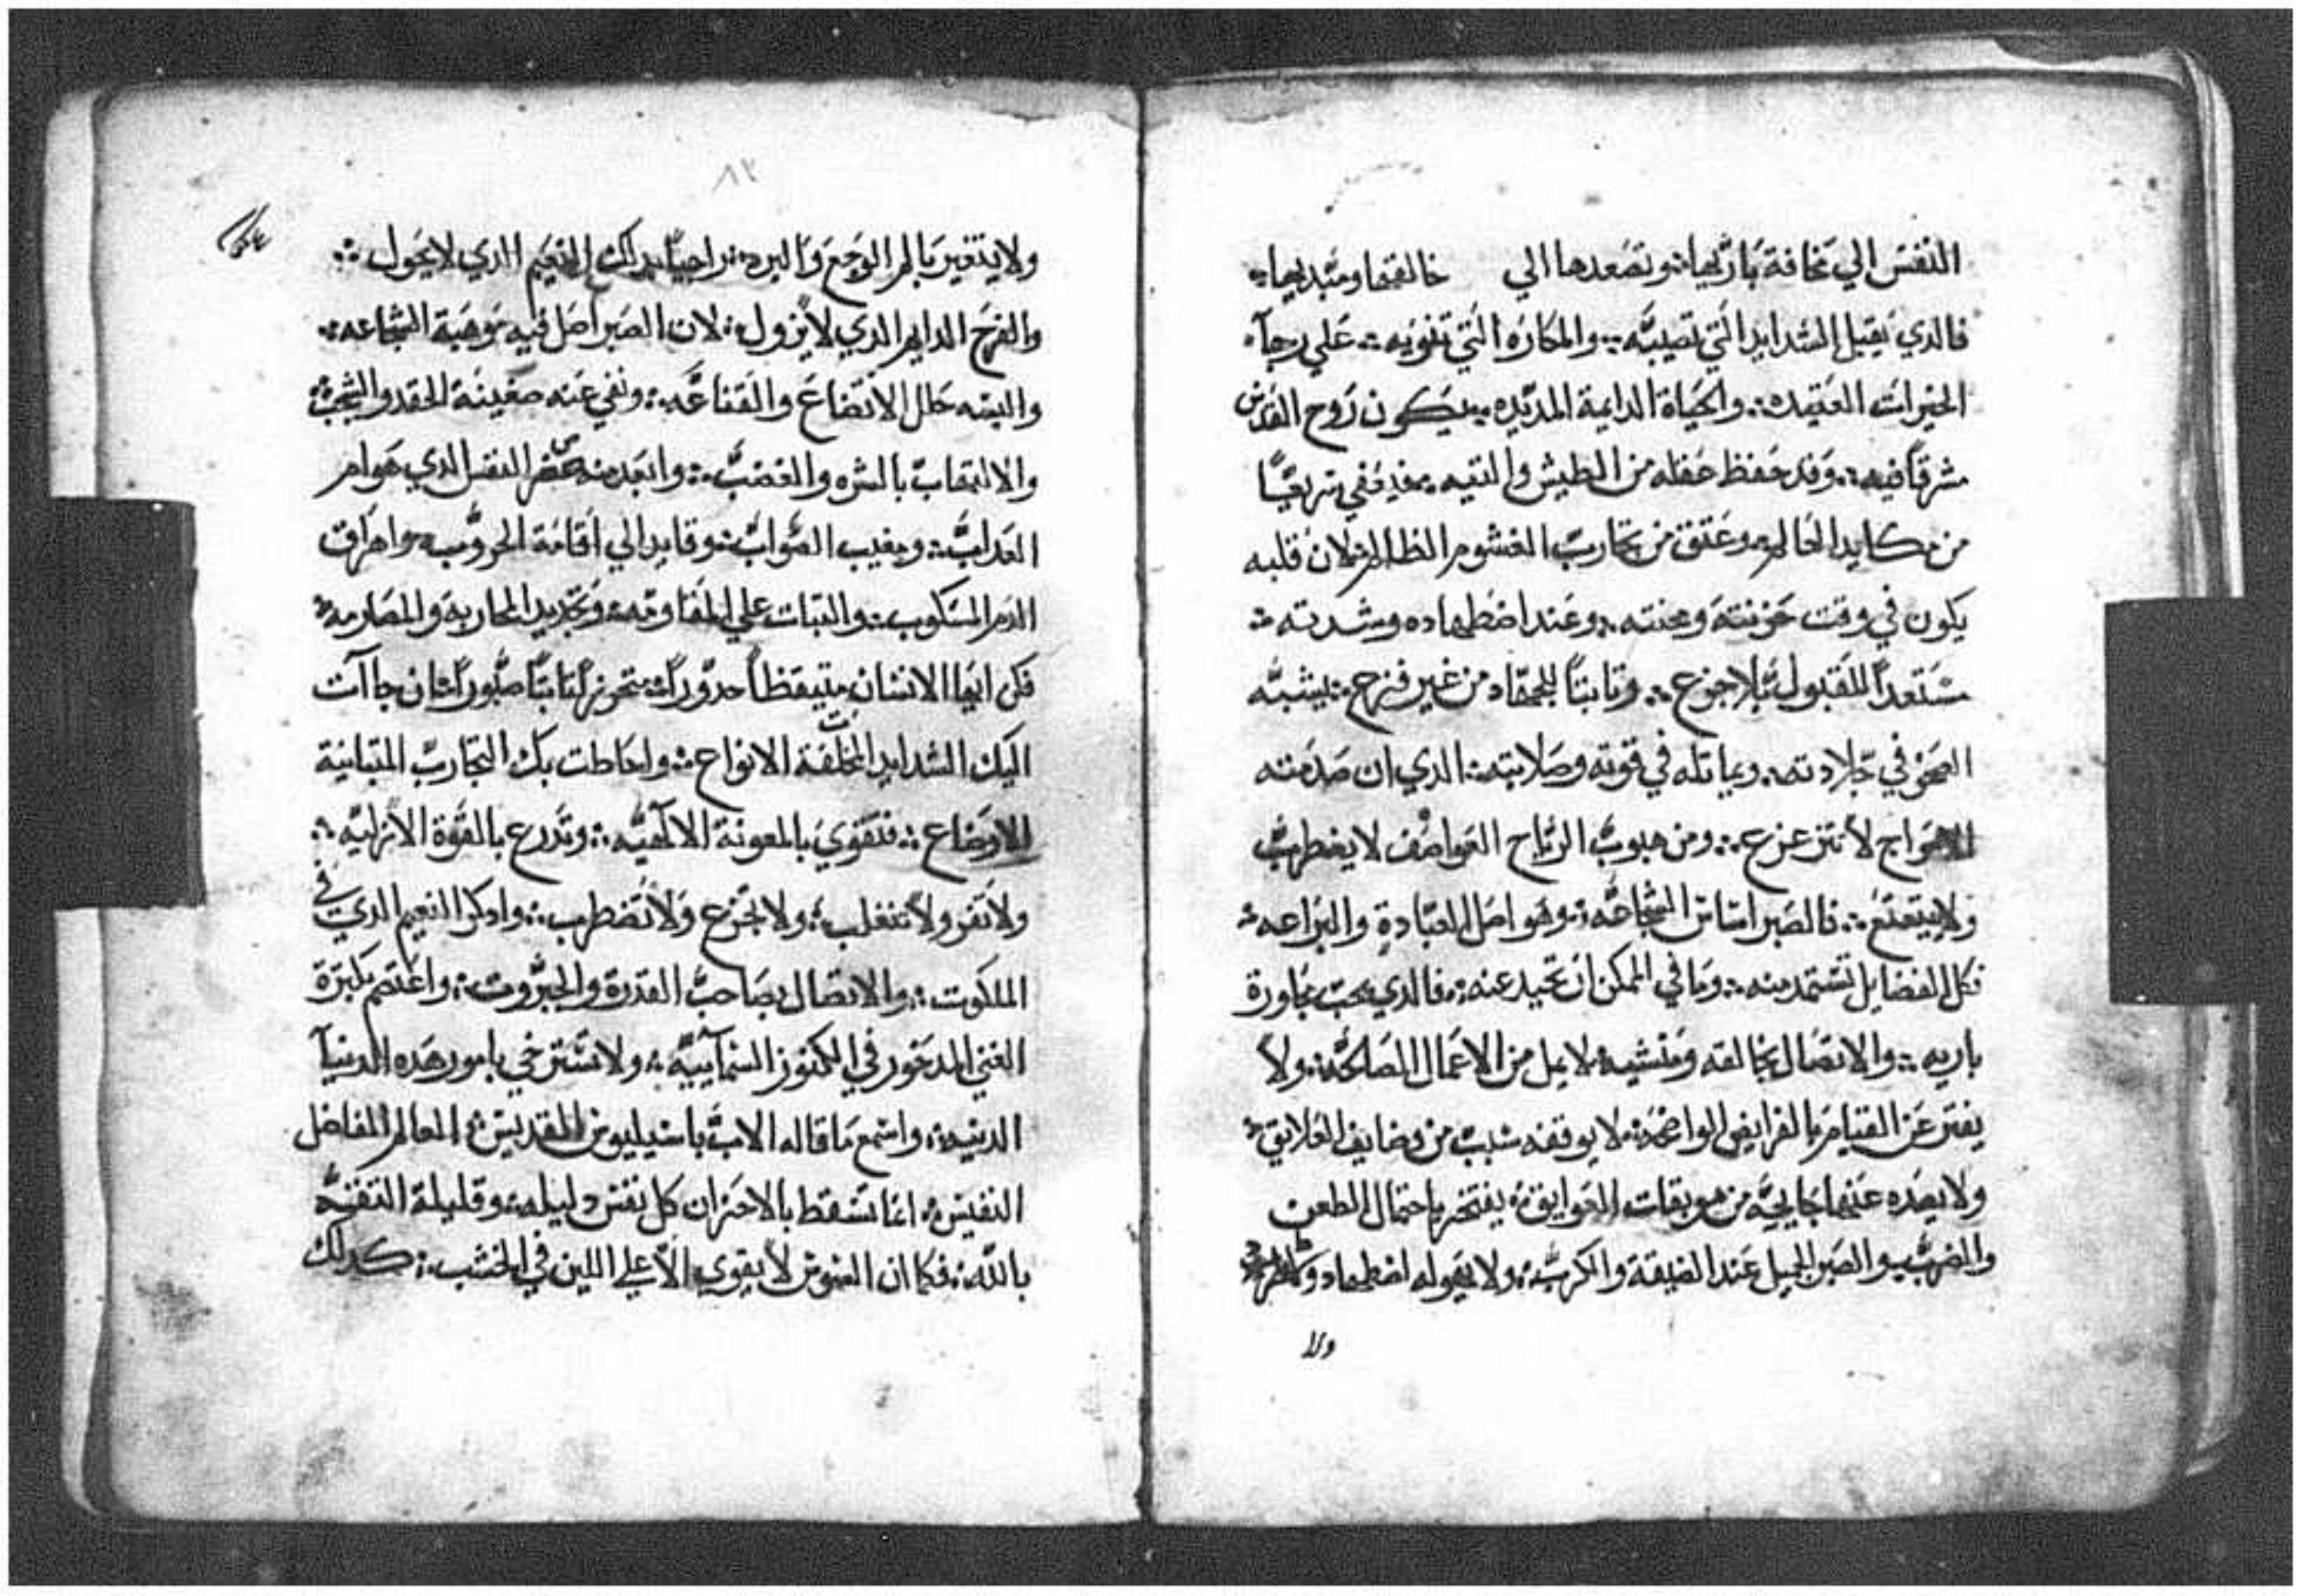 النفس الي مخافة باريها ؛ وتصعدها الي خالقها ومبديها ؛
فالذي يقبل الشدايد التي تصيبه ؛ والمكاره التي تنويه ؛ علي رجاء
الخيرات العتيده ؛ والحياة الدايمة المديده ؛ يكون روح القدس
مشرقا فيه ؛ وقد حفظ عقله من الطيش والتيه ؛
من مكايد العالم ؛ وعتق من تجارب الغشوم الظالم ؛ لان قلبه
يكون في وقت حزنته ومحنته ؛ وعند اضطهاده وشدته ؛
مستعدا للقبول بلا جزع ؛ وثابتا للجهاد من غير فزع ؛ يشبه
الصخر في جلادته ؛ ويماثله في قوته وصلابته ؛ الذي ان صدمته
الامواج لا تتزعزع ؛ ومن هبوب الرياح العواصف لا يضطرب
ولا يتعتع ؛ فالصبر اساس الشجاعه ؛ وهو اصل العبادة والبراعه ؛
فكل الفضايل تستمد منه ؛ وما في الممكن ان تحيد عنه ؛ فالذي يحب مجاورة
باريه ؛ والاتصال بخالقه ومنشيه ؛ لا يمل من الاعمال الصالحه ؛ ولا
يفتر عن القيام بالفرايض الواضحه ؛ لا يوقفه سبب من العلايق ؛
ولا يصده عنها جايحه من موبقات العوايق ؛ يفتخر باحتمال الطعن
والضرب ؛ والصبر الجميل عند الضيقة والكرب ؛ ولا يهوله اضطهاد
ولا
٨٢
ولا يتغير بالم الوجع والبرد ؛ راجيا بذلك النعيم الذي لا يحول ؛
والفرح الدايم الذي لا يزول ؛ لان الصبر اصل فيه موهبة الشجاعه ؛
والبسه حلل الاتضاع والقناعه ؛ ونفي عنه ضغينة الحقد
والالتهاب بالشره والغضب ؛ وابعد منه النفس الذي هو ام
العداب ؛ ومغيب الصواب ؛ وقايد الي اقامة الحروب ؛ واهراق
الدم المسكوب ؛ والثبات علي المقاومه ؛ وتجديد المحاربه والمصارمه ؛
فكن ايها الانسان متيقظا حدورا ؛ متحرزا ثابتا صبورا ؛ ان جاآت
اليك الشدايد المختلفة الانواع ؛ واحاطت بك التجارب المتباينة
الاوضاع ؛ فتقوي بالمعونة الالاهيه ؛ وتدرع بالقوة الازليه ؛
ولا تفر ولا تنغلب ؛ ولا تجزع ولا تضطرب ؛ وادكر النعيم الذي في
الملكوت ؛ والاتصال بصاحب القدرة والجبروت ؛ واعتصم بكثرة
الغني المدخور في الكنوز السمآييه ؛ ولا تسترخي بامور هذه الدنيا
الدنيه ؛ واسمع ما قاله الاب باسيليوس القديس ؛ العالم الفاضل
النفيس ؛ انما تسقط بالاحزان كل نفس دليله ؛ وقليلة الثقه
بالله ؛ فكما ان السوس لا يقوي الا علي اللين في الخشب ؛ كدلك